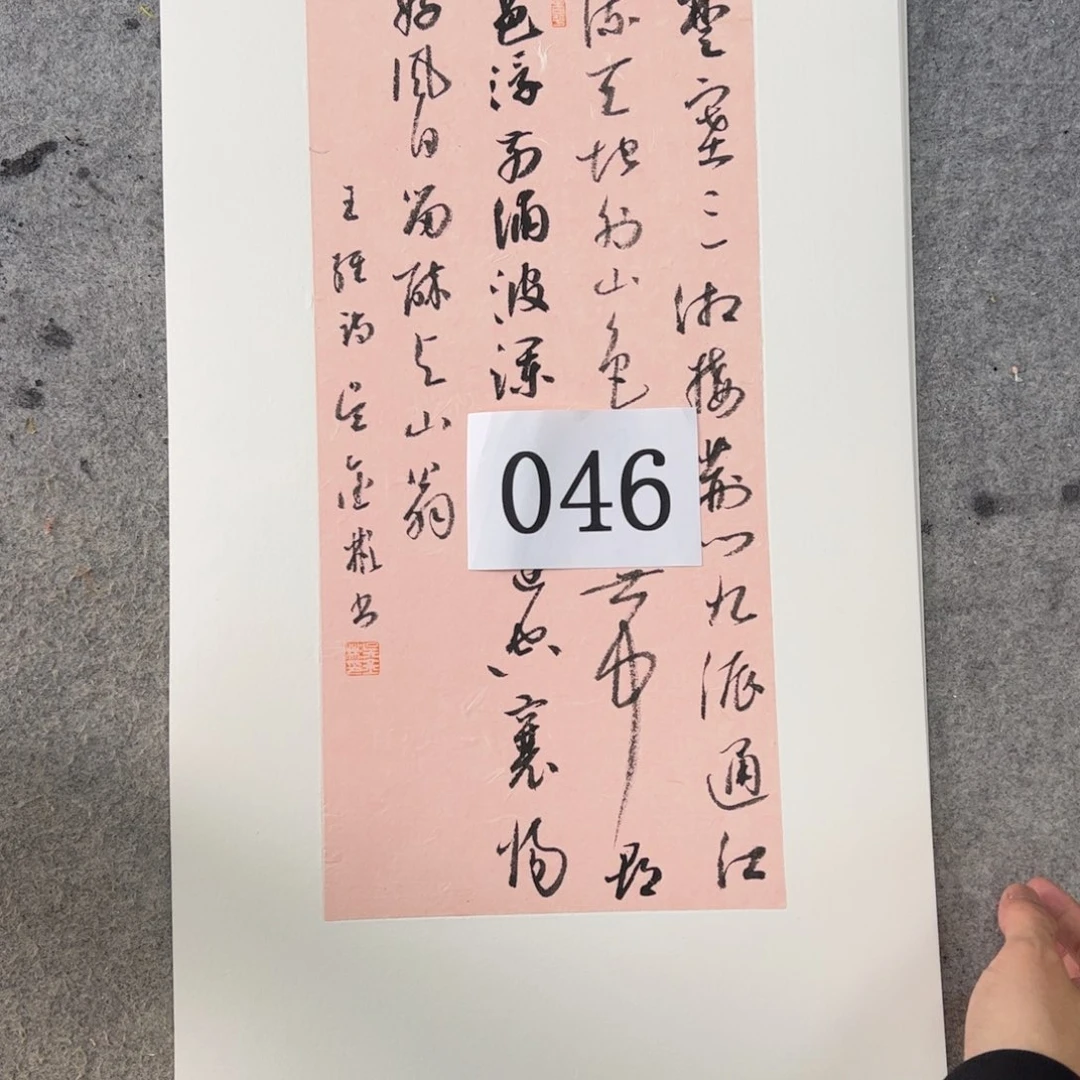 楚塞三湘接荆門九派通江
流天地外山色無中郡
邑浮前浦波瀾遠空襄陽
好風日留醉与山翁
王維詩吴金書
046